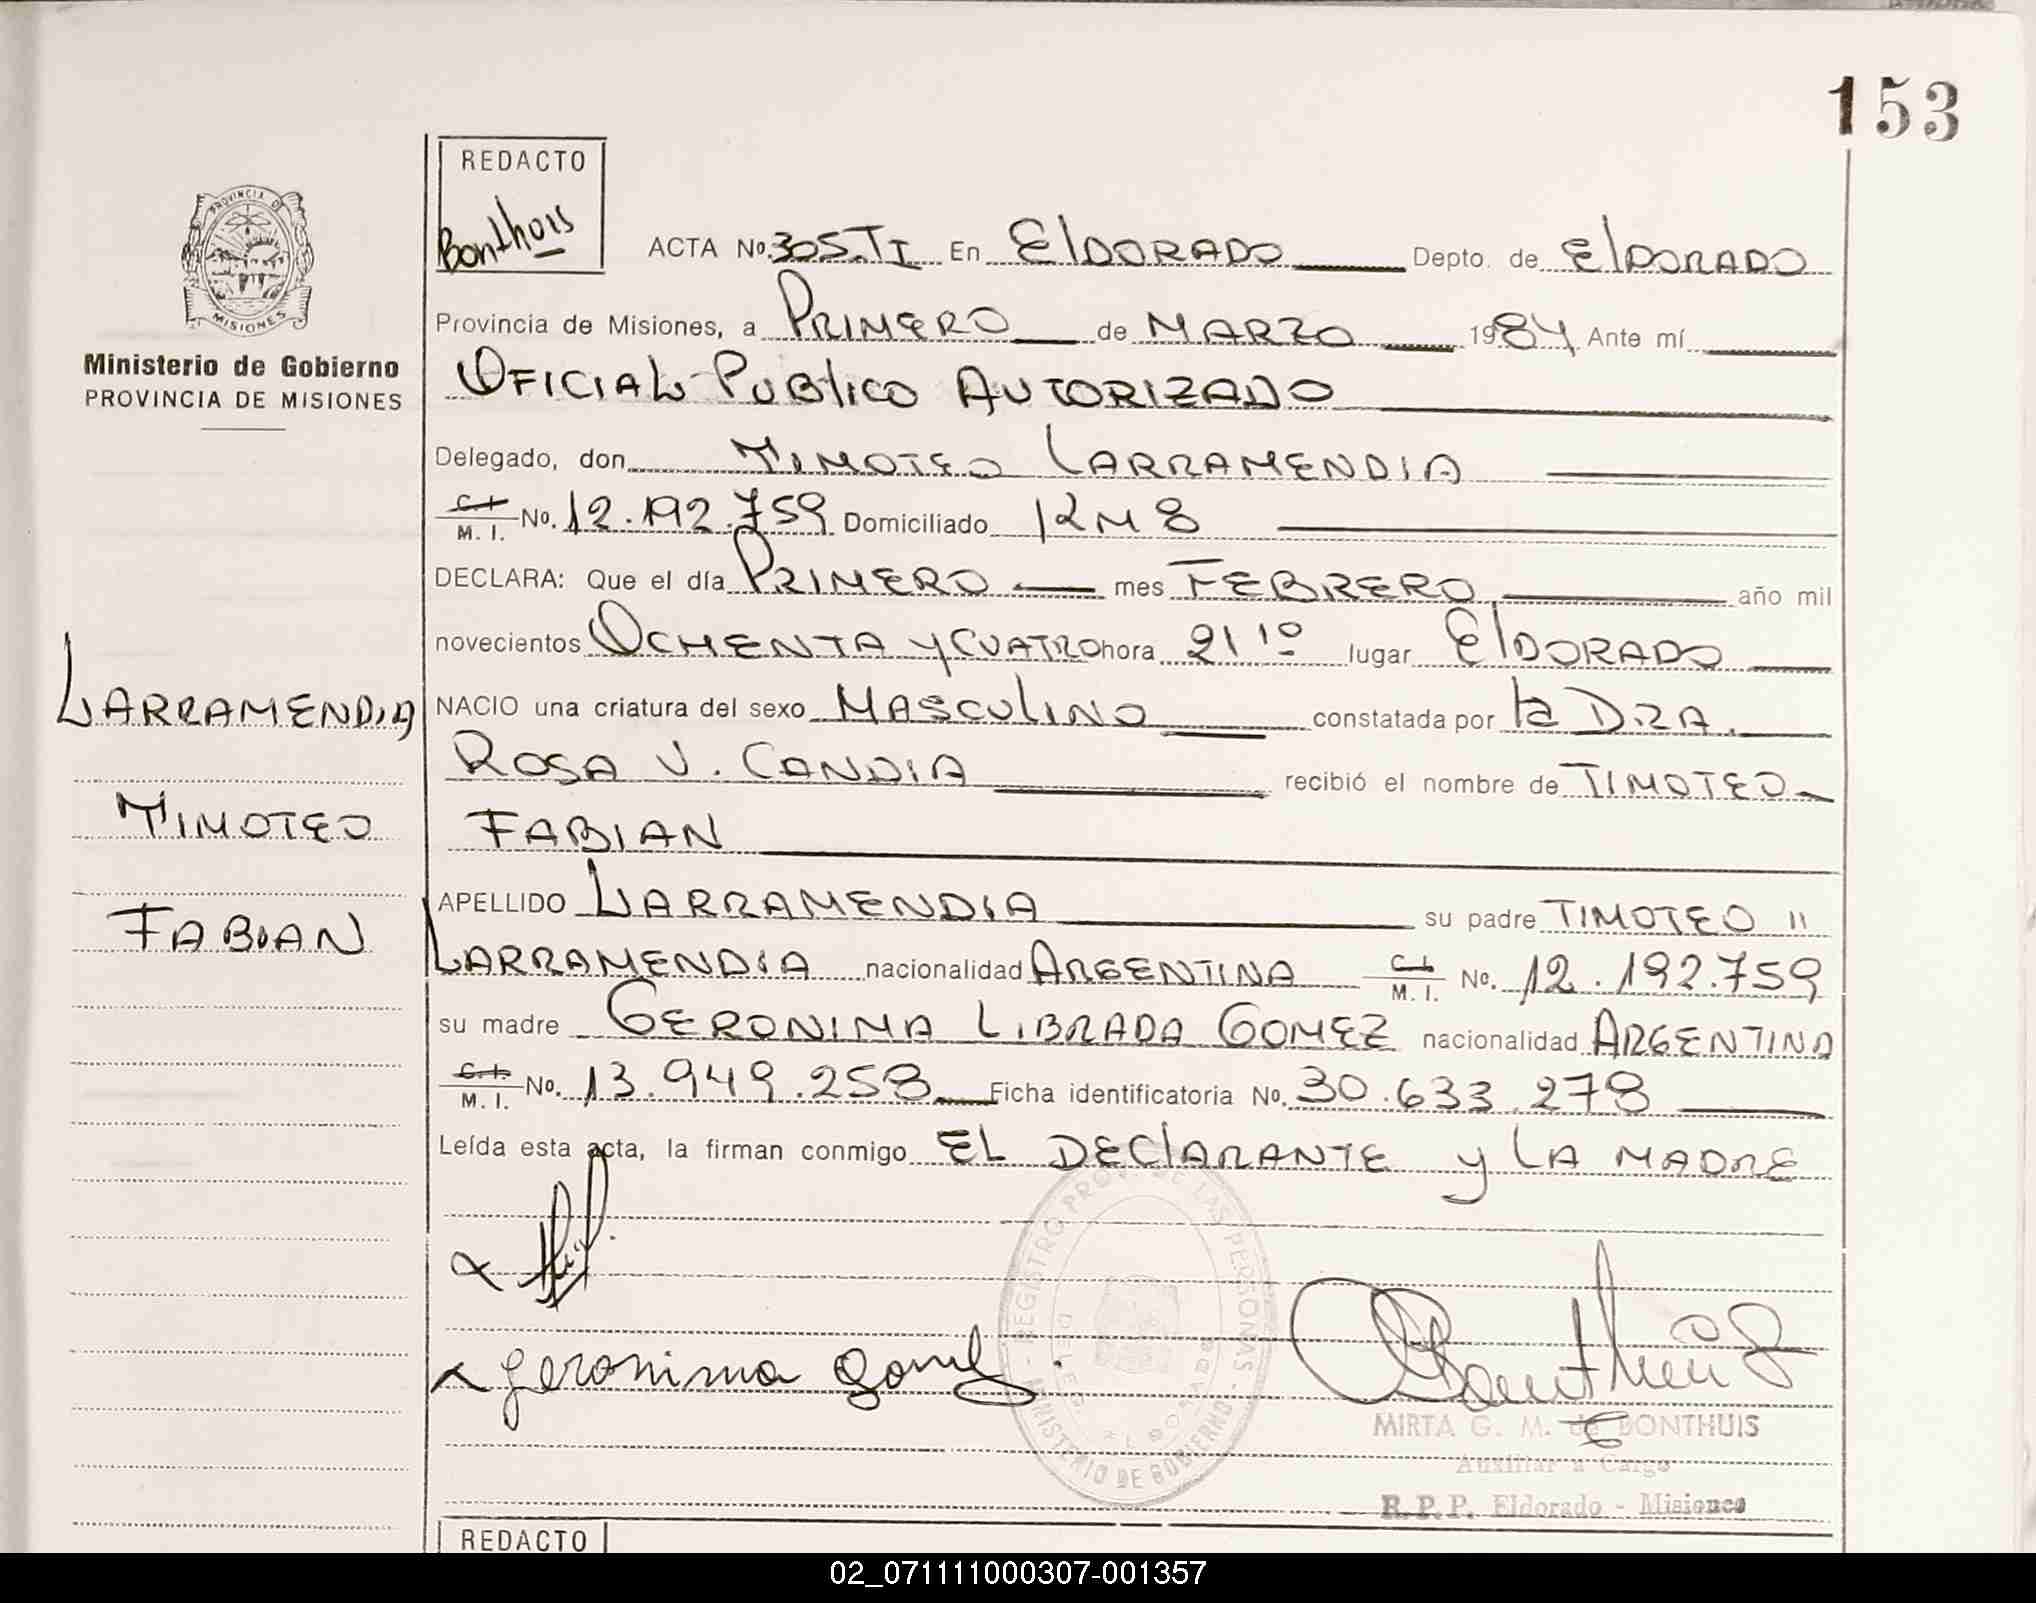 153
REDACTO
Bonthuis
PROVINCIA DE
MISIONES
Ministerio de Gobierno
PROVINCIA DE MISIONES
ACTA No. 305.TI En ElDORADO Depto. de ElDORADO
Provincia de Misiones, a PRIMERO de MARZO 1984 Ante mí
OFICIAL PUBlICO AUTORIZADO
Delegado, don TIMOTEO LARRAMENDIA
C.I. M. I. No. 12.192.759 Domiciliado KM 8
DECLARA: Que el día PRIMERO mes FEBRERO año mil
novecientos OCHENTA Y CUATRO hora 21 10 lugar ElDORADO
NACIO una criatura del sexo MASCULINO constatada por la DRA.
ROSA V. CANDIA recibió el nombre de TIMOTEO
FABIAN
APELLIDO LARRAMENDIA su padre TIMOTEO "
LARRAMENDIA nacionalidad ARGENTINA C.I. M. I. No. 12.192.759
su madre GERONIMA LIBRADA GOMEZ nacionalidad ARGENTINA
C.I. M. I. No. 13.949.258 Ficha identificatoria No. 30.633.278
Leída esta acta, la firman conmigo EL DEClARANTE y LA MADRE
LARRAMENDIA
TIMOTEO
FABIAN
Geronima Gomez
REGISTRO PROV. DE LAS PERSONAS
MINISTERIO DE GOBIERNO
MIRTA G. M. de BONTHUIS
Auxiliar a Cargo
R.P.P. Eldorado - Misiones
REDACTO
02_071111000307-001357